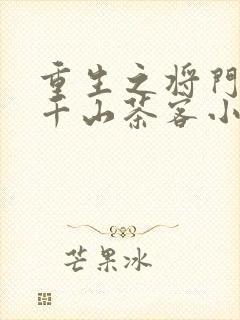 重生之将門
千山茶客小
芒果冰